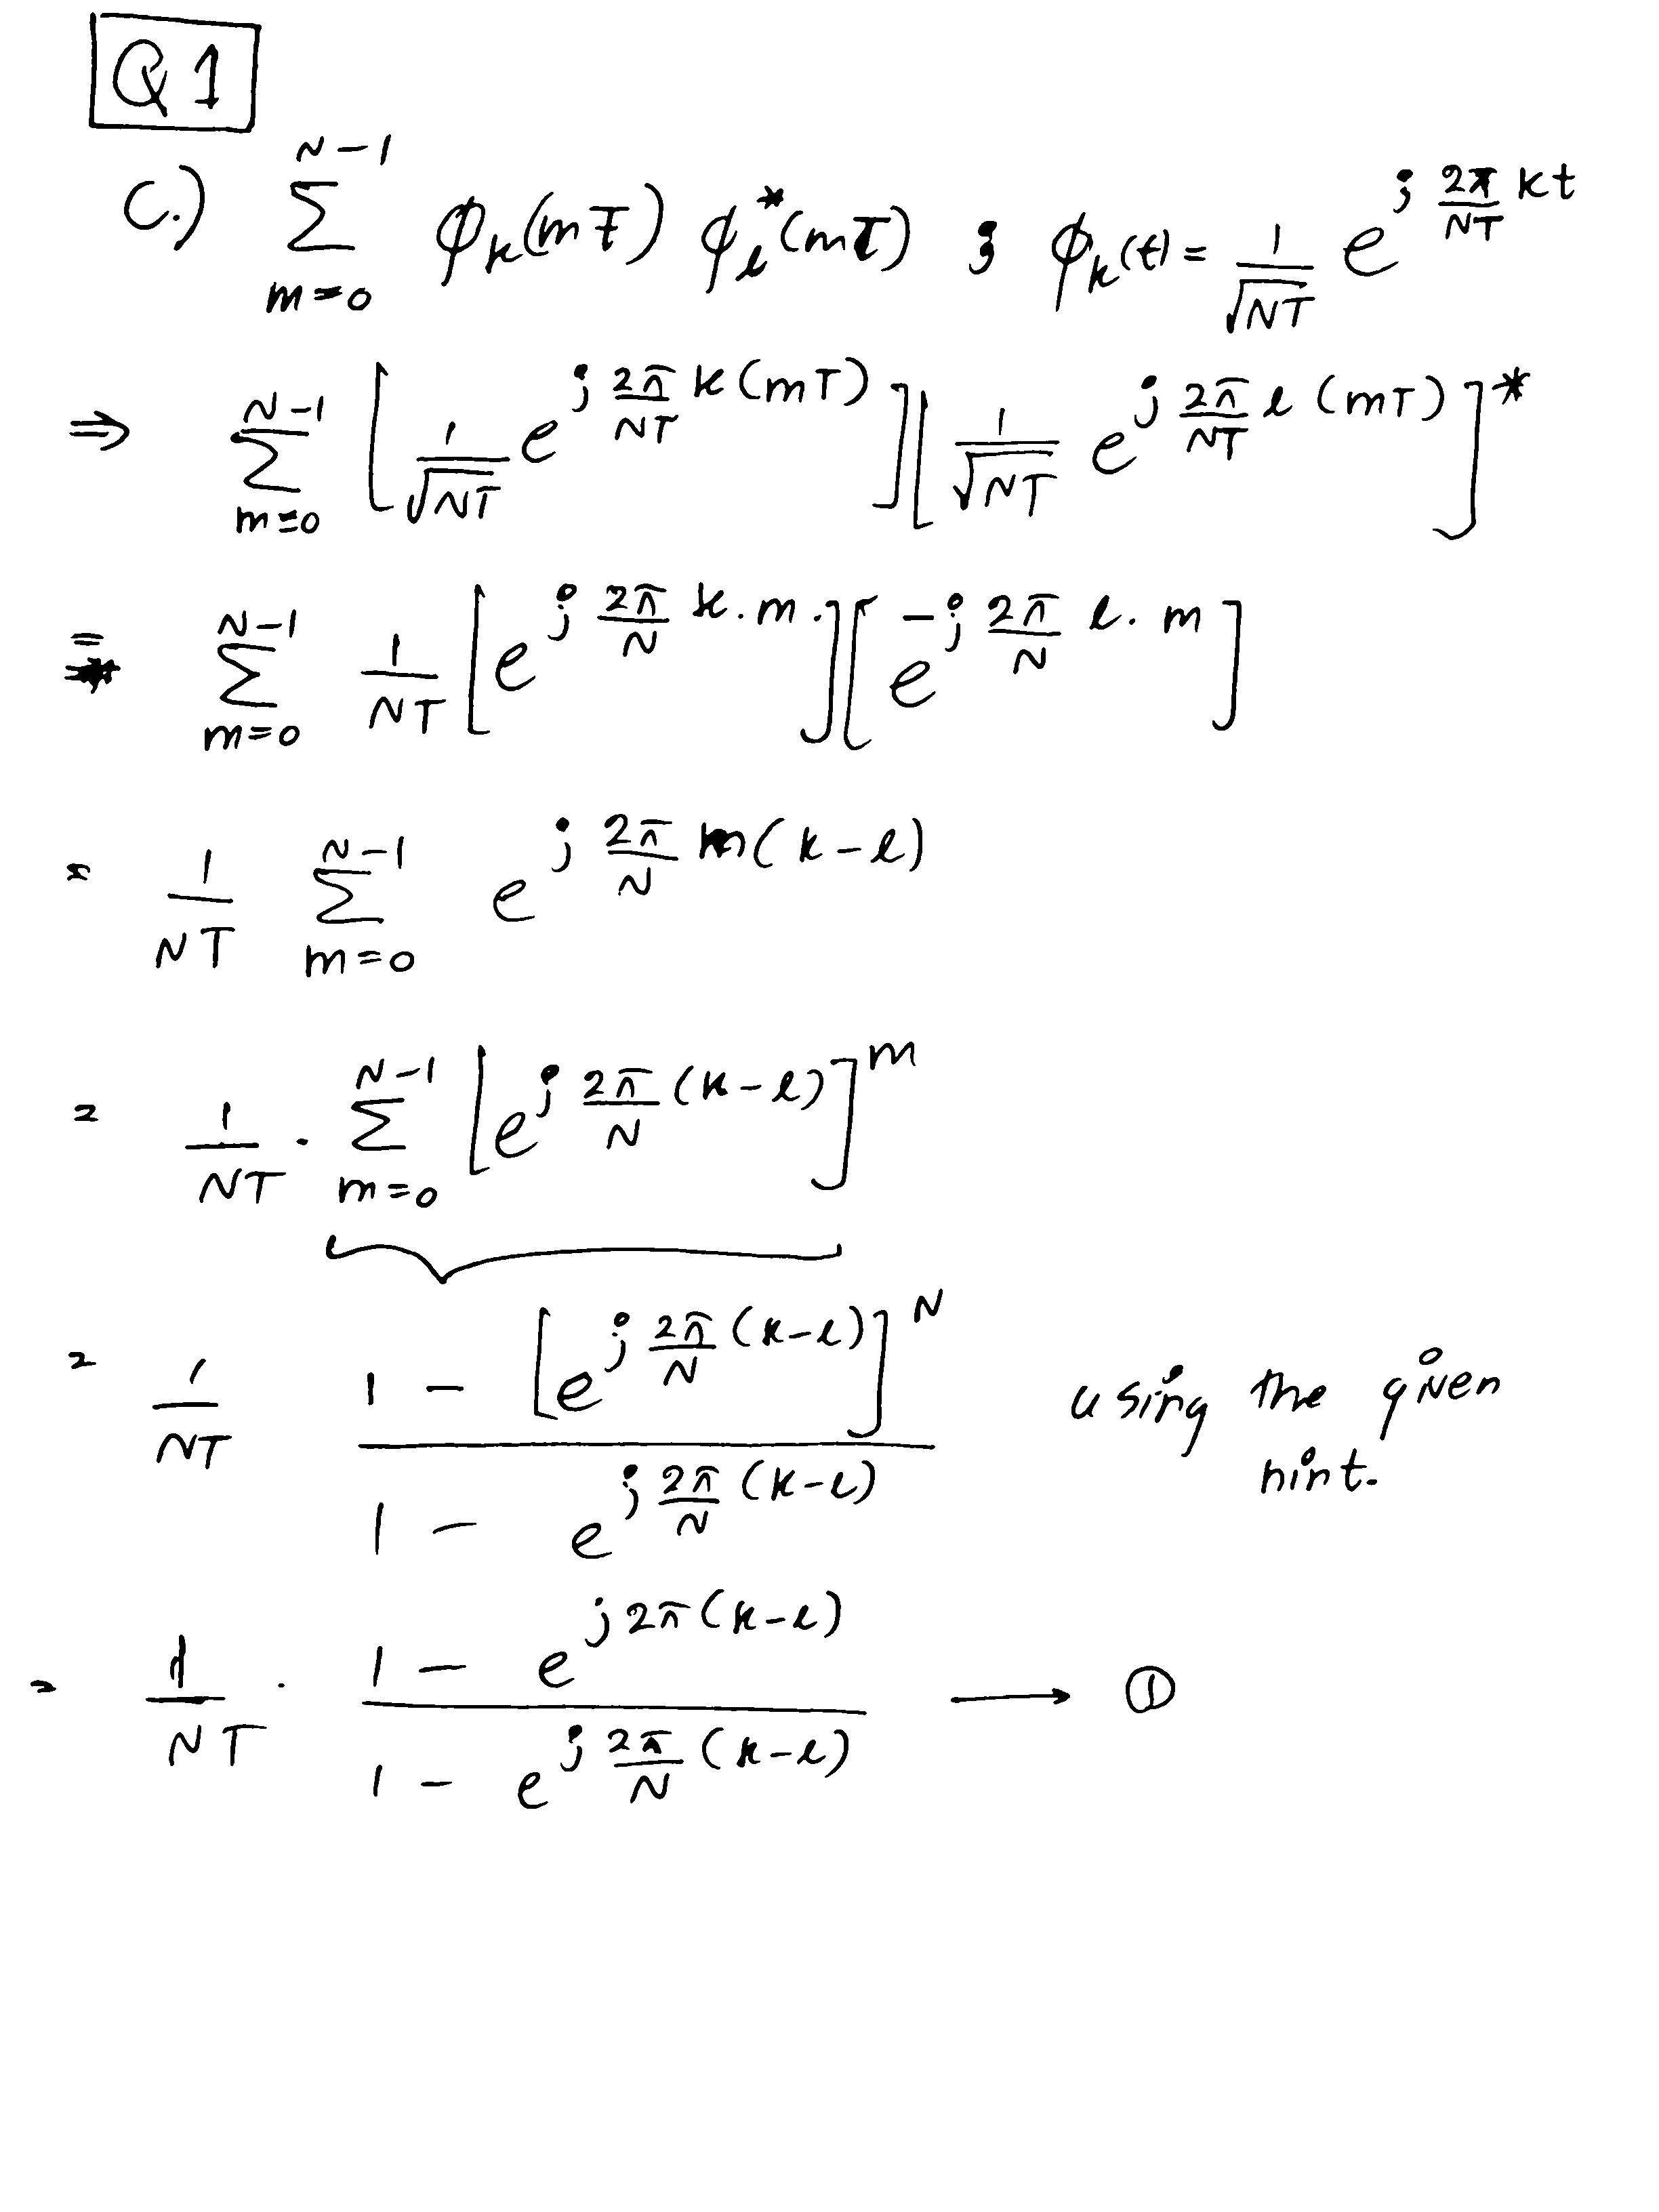 Q1
C.) \sum_{m=0}^{N-1} \phi_k(mT) \phi_l^*(mT) ; \phi_k(t) = \frac{1}{\sqrt{NT}} e^{j \frac{2\pi}{NT} kt}
\Rightarrow \sum_{m=0}^{N-1} \left[ \frac{1}{\sqrt{NT}} e^{j \frac{2\pi}{NT} k(mT)} \right] \left[ \frac{1}{\sqrt{NT}} e^{j \frac{2\pi}{NT} l(mT)} \right]^*
= \sum_{m=0}^{N-1} \frac{1}{NT} \left[ e^{j \frac{2\pi}{N} k.m.} \right] \left[ e^{-j \frac{2\pi}{N} l.m} \right]
= \frac{1}{NT} \sum_{m=0}^{N-1} e^{j \frac{2\pi}{N} m(k-l)}
= \frac{1}{NT} . \sum_{m=0}^{N-1} \left[ e^{j \frac{2\pi}{N} (k-l)} \right]^m
= \frac{1}{NT} \frac{1 - \left[ e^{j \frac{2\pi}{N} (k-l)} \right]^N}{1 - e^{j \frac{2\pi}{N} (k-l)}} using the given
hint.
= \frac{1}{NT} . \frac{1 - e^{j 2\pi (k-l)}}{1 - e^{j \frac{2\pi}{N} (k-l)}} \longrightarrow ①